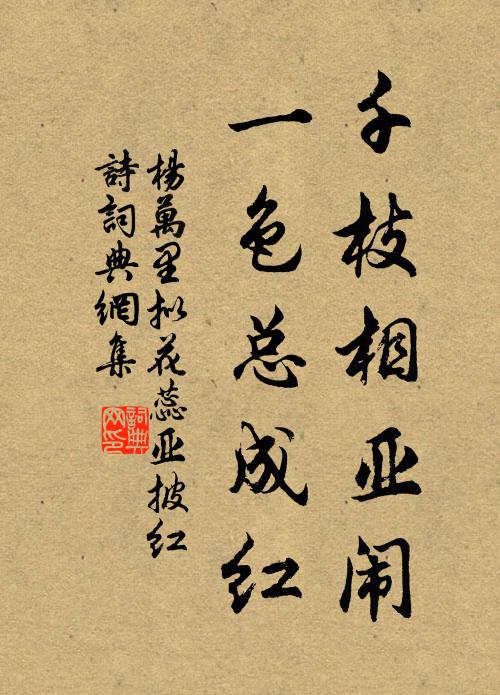 千枝相亚闹
一色总成红
楊萬里拟花蕊亚披红
詩詞典網集
詞典
网印